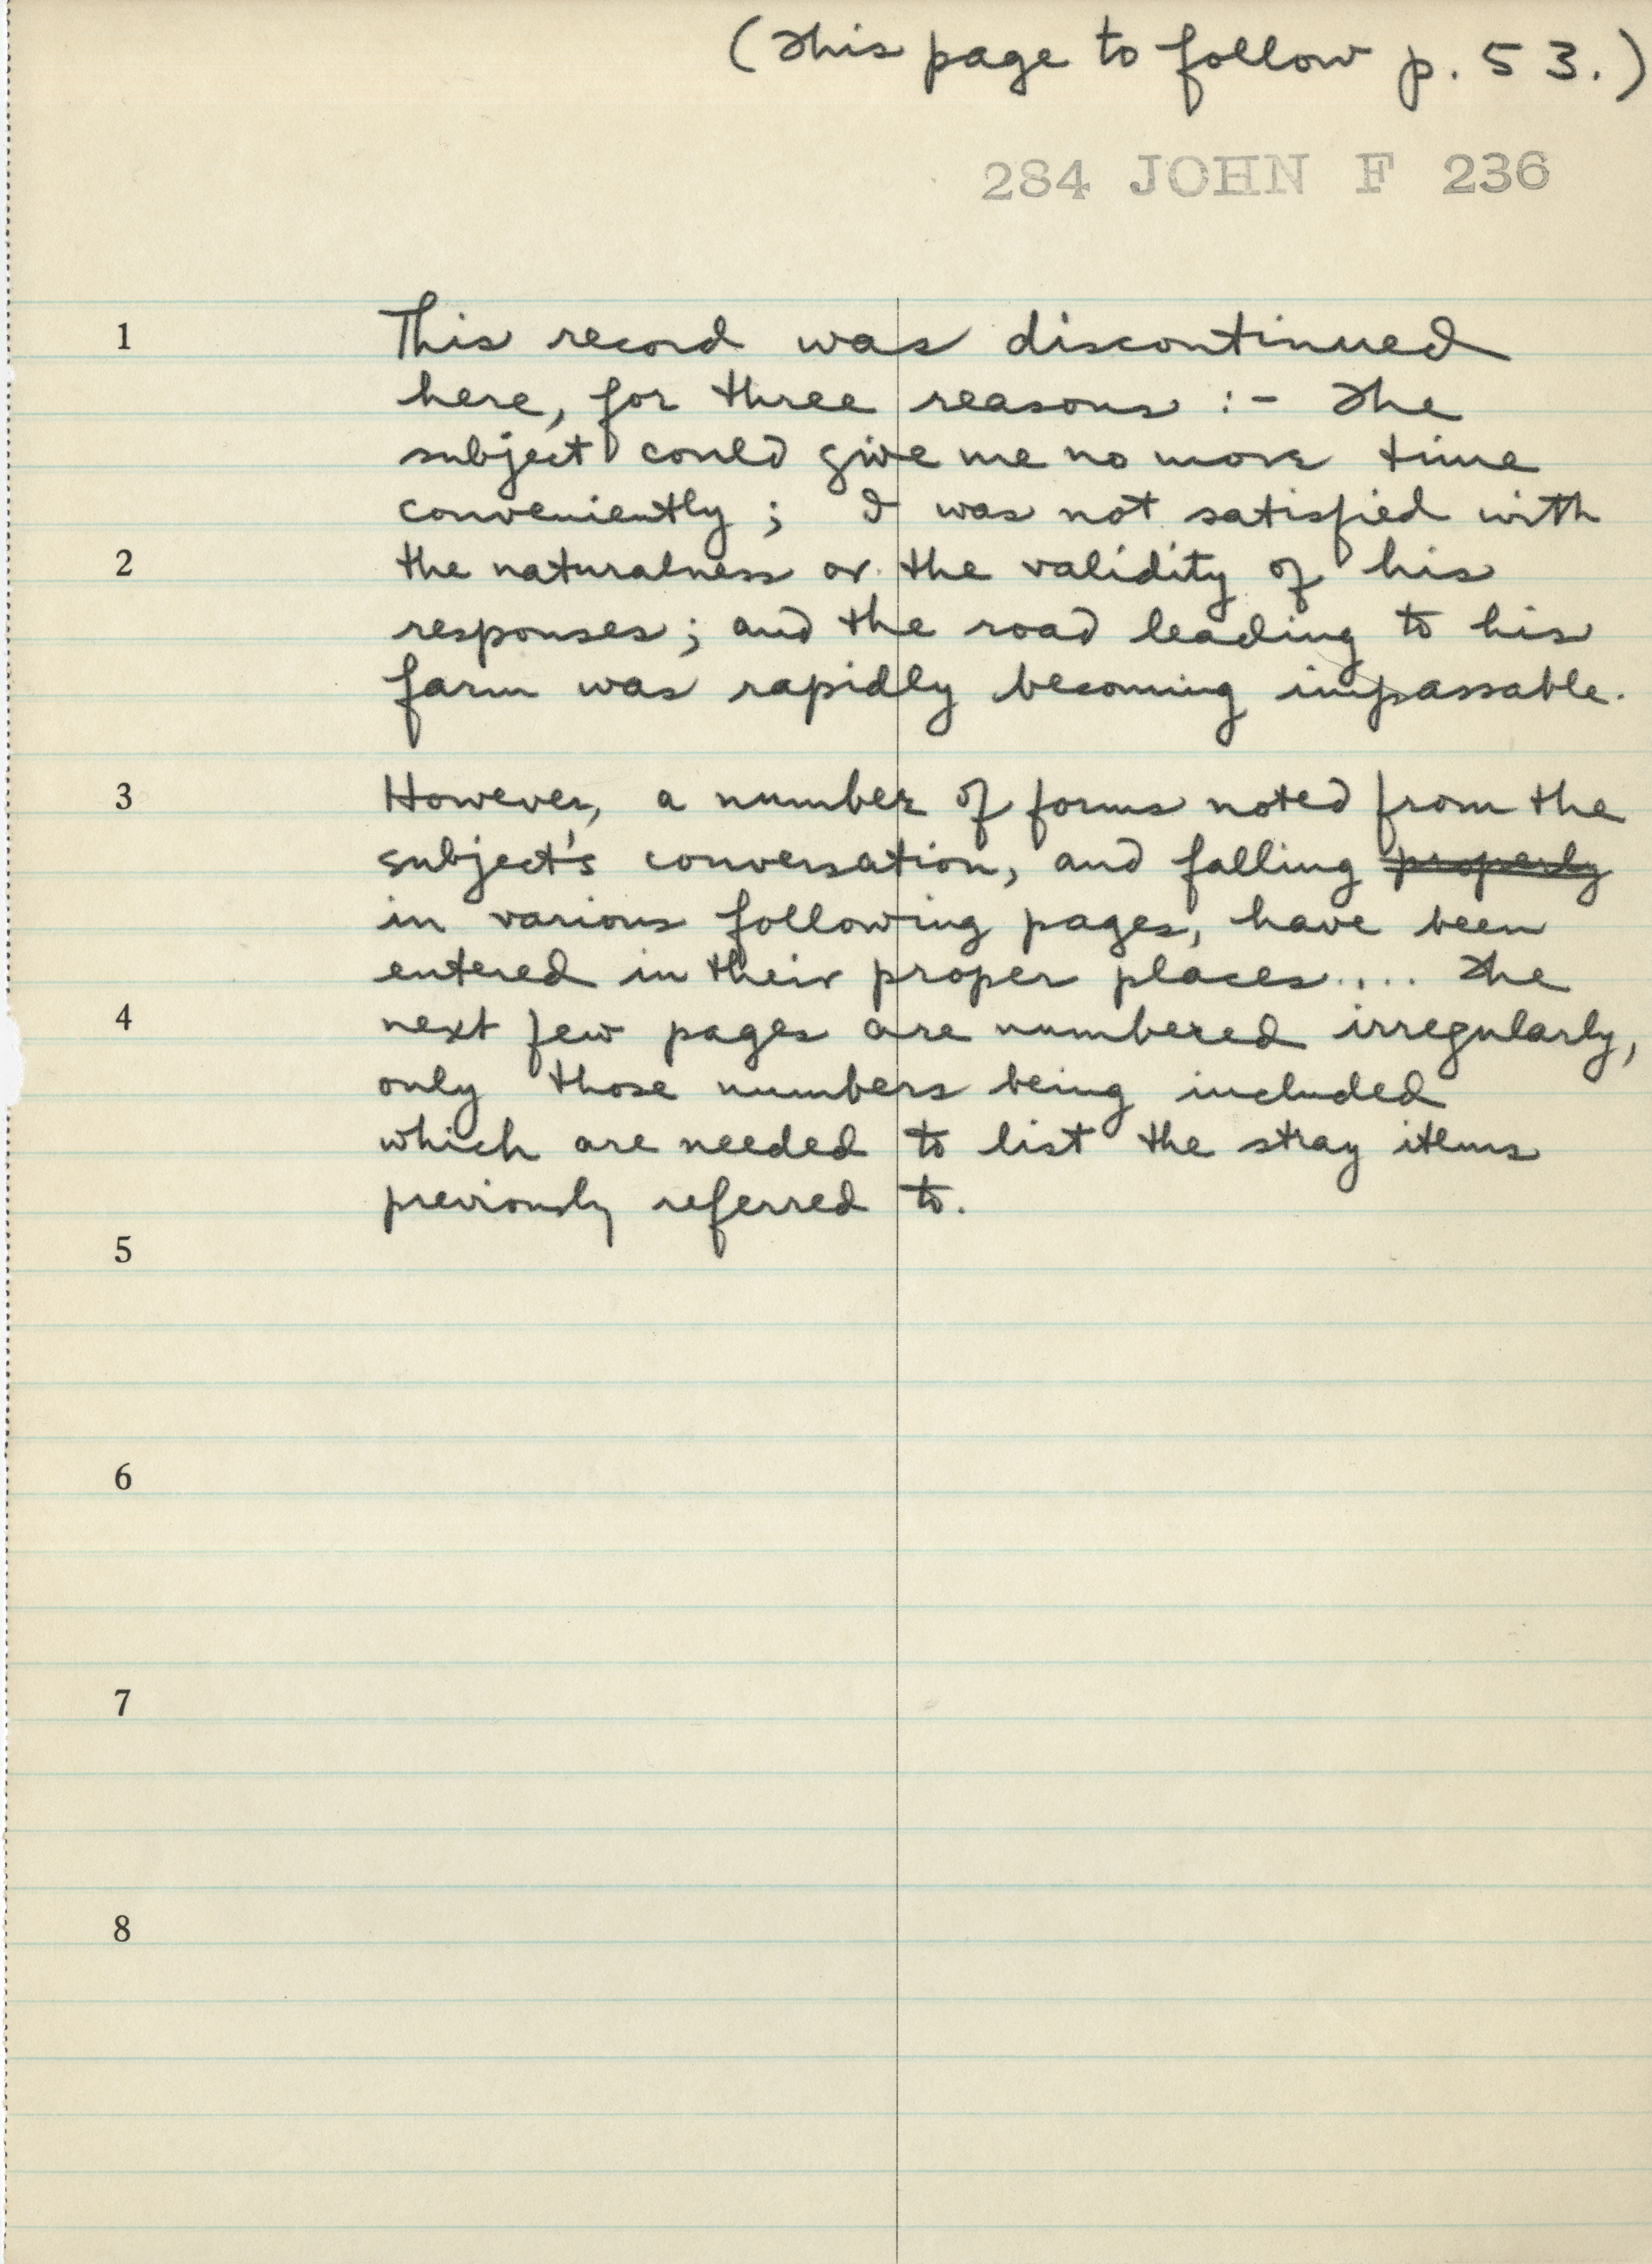 (This page to follow p. 53.)
284 JOHN F 236
1 This record was discontinued
here, for three reasons :- The
subject could give me no more time
conveniently; I was not satisfied with
2 the naturalness or the validity of his
responses; and the road leading to his
farm was rapidly becoming impassable.
3 However, a number of forms noted from the
subject's conversation, and falling properly
in various following pages, have been
entered in their proper places.... The
4 next few pages are numbered irregularly,
only those numbers being included
which are needed to list the stray items
previously referred to.
5
6
7
8